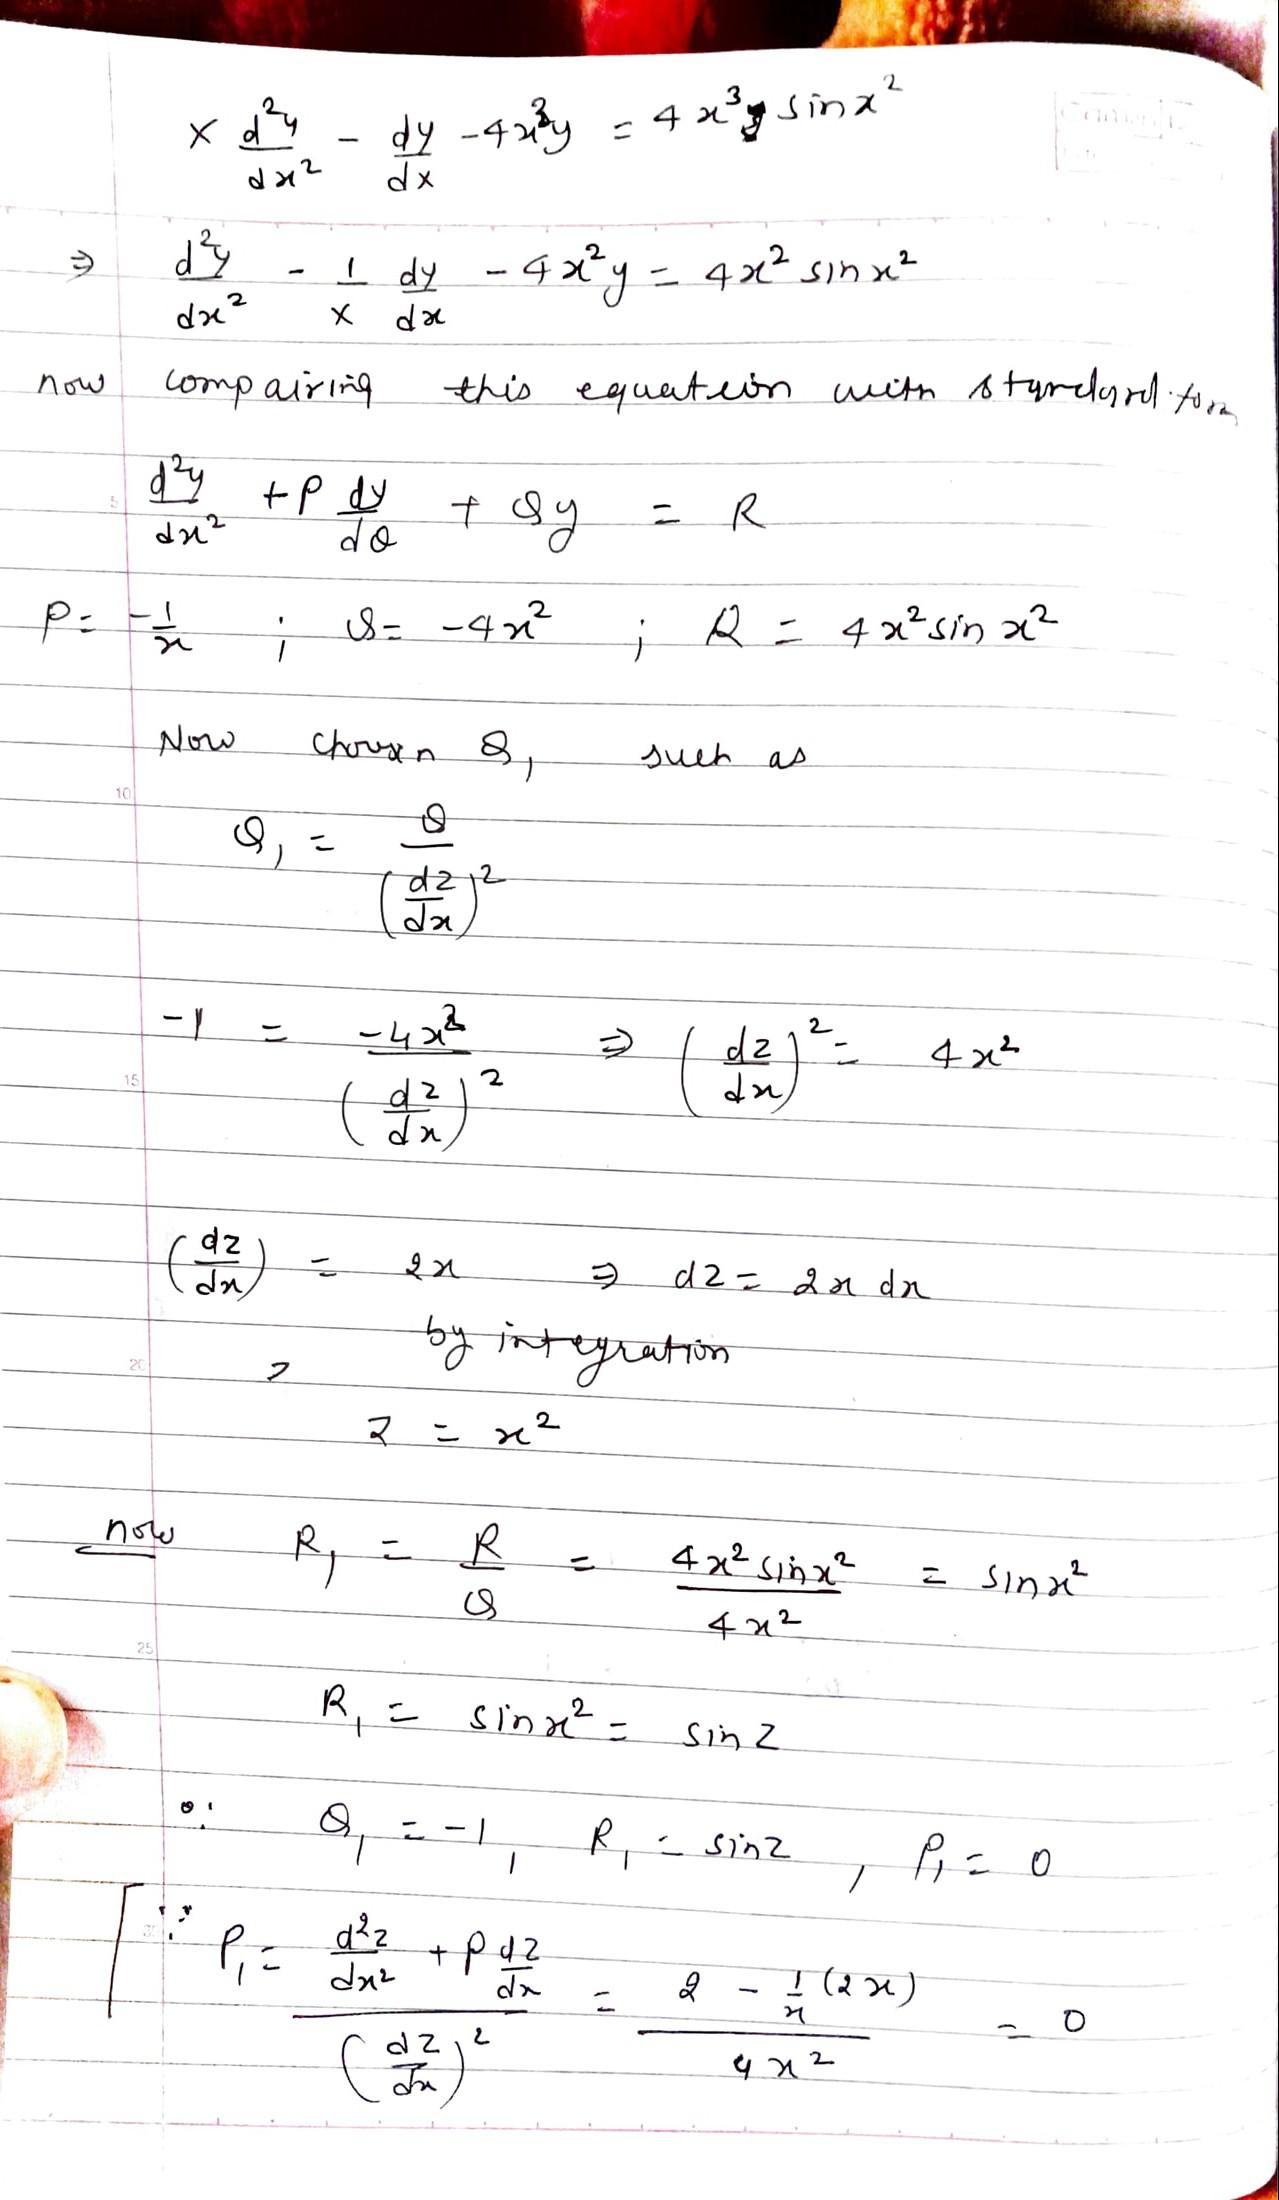 x d²y/dx² - dy/dx - 4x³y = 4x³ sinx²
⇒ d²y/dx² - 1/x dy/dx - 4x²y = 4x² sinx²
now compairing this equation with standard form
5
d²y/dx² + P dy/dθ + Qy = R
P = -1/x ; Q = -4x² ; R = 4x² sin x²
Now Q₁ such as
10
Q₁ = Q/(dz/dx)²
-1 = -4x²/(dz/dx)² ⇒ (dz/dx)² = 4x²
15
(dz/dx) = 2x ⇒ dz = 2x dx
by integration
20
z = x²
now R₁ = R/Q = 4x² sinx²/4x² = sinx²
25
R₁ = sinx² = sinz
∴ Q₁ = -1, R₁ = sinz, P₁ = 0
[∵ P₁ = (d²z/dx² + P dz/dx)/(dz/dx)² = (2 - 1/x (2x))/4x² = 0